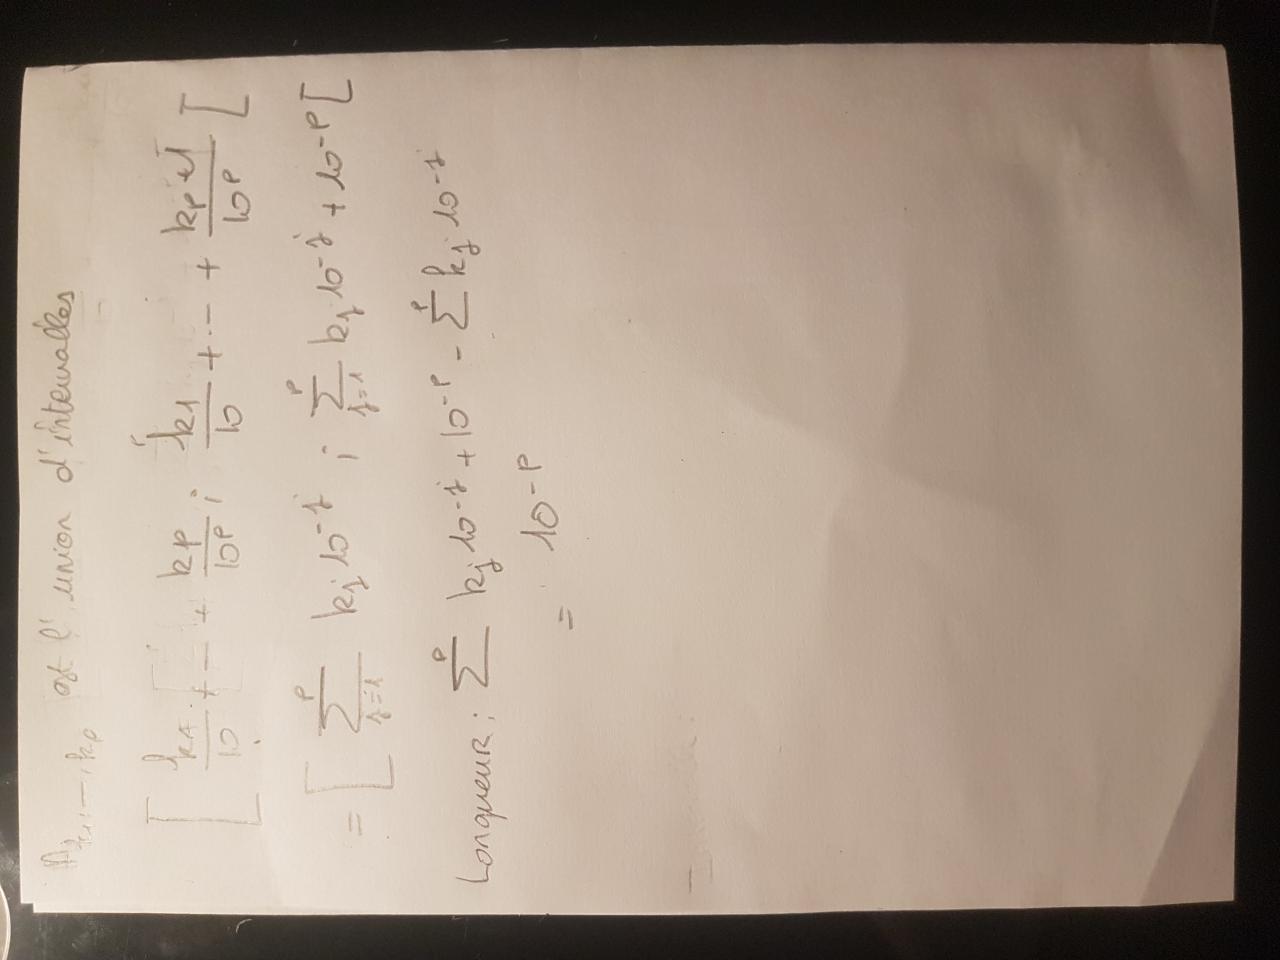 A_{k_1, --, k_p} est l'union d'intervalles
[ k_1/10 + -- + k_p/10^p ; k_1/10 + -- + (k_p + 1)/10^p [
= [ ∑_{j=1}^{p} k_j 10^{-j} ; ∑_{j=1}^{p} k_j 10^{-j} + 10^{-p} [
Longueur : ∑^{p} k_j 10^{-j} + 10^{-p} - ∑^{p} k_j 10^{-j}
= 10^{-p}